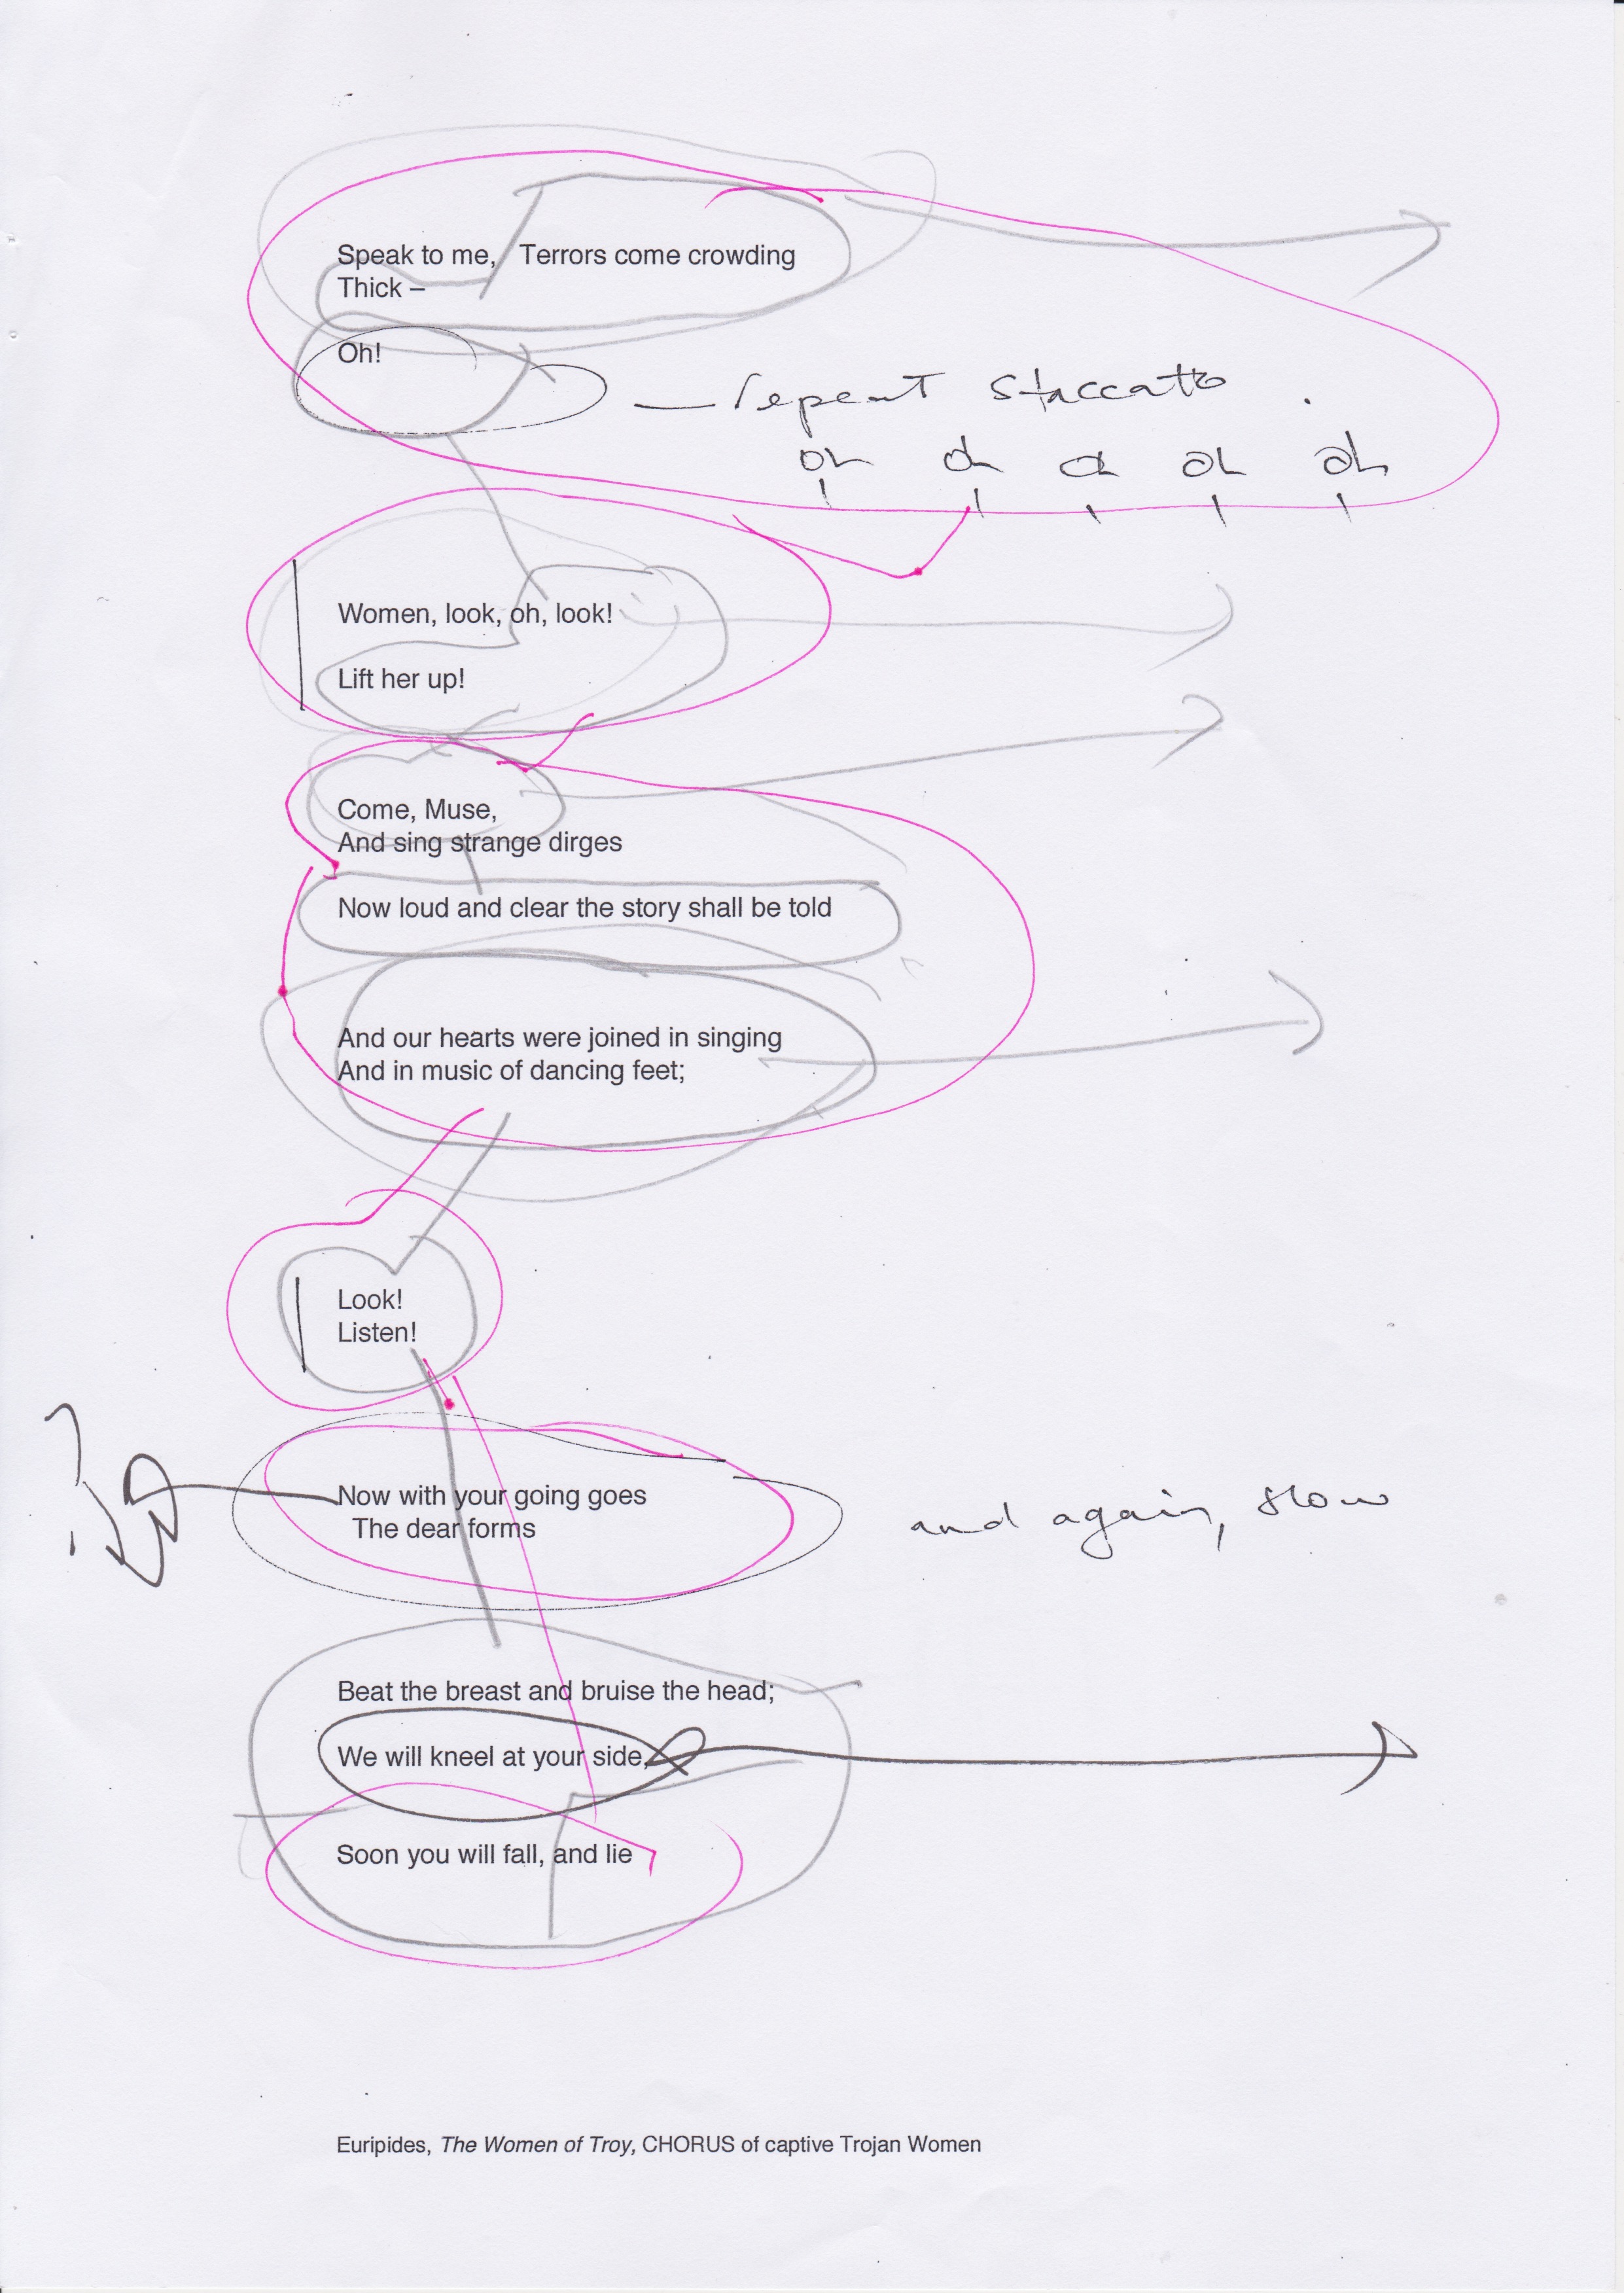 Speak to me, Terrors come crowding
Thick –
Oh!
— repeat staccato .
oh oh oh oh oh
Women, look, oh, look!
Lift her up!
Come, Muse,
And sing strange dirges
Now loud and clear the story shall be told
And our hearts were joined in singing
And in music of dancing feet;
Look!
Listen!
Now with your going goes
The dear forms
and again, slow
Beat the breast and bruise the head;
We will kneel at your side,
Soon you will fall, and lie
Euripides, The Women of Troy, CHORUS of captive Trojan Women